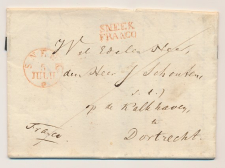 SNEEK
FRANCO
SNEEK
JULIJ
Wel Edele Heer,
den Heer J Schouten
op de Kalkhaven,
te
Dortrecht.
Franco